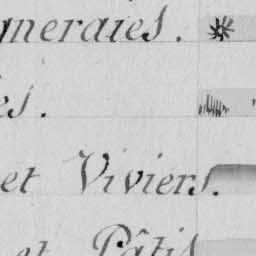 gneraies.
es.
et Viviers.
et Pâtis